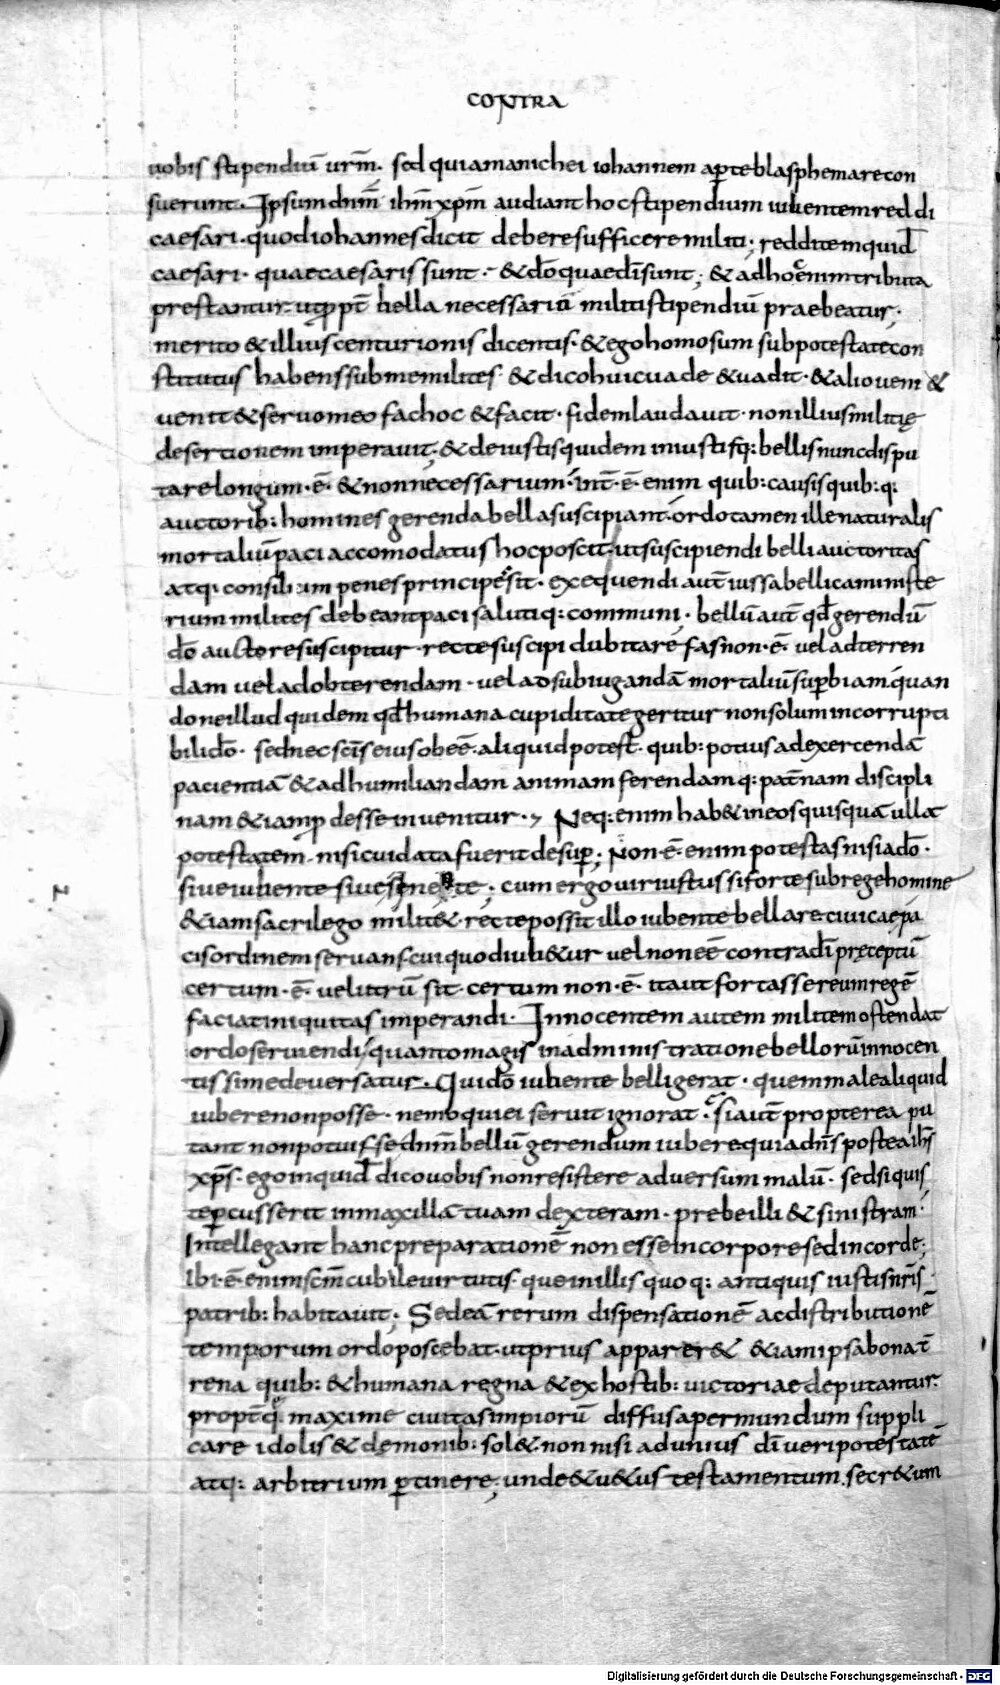 CONTRA
uobis stipendiū urm̄. sed quia manichei iohannem aꝑte blasphemare con
suerunt. Ipsum dnm̄ ihm̄ xpm̄ audiant hoc stipendium iubentem reddi
caesari. quod iohannes dicit debere sufficere militi; reddite inquid̄
caesari. quae caesaris sunt. & dō quae dī sunt; & adhoc enim tributa
prestantur ut ꝓpt̄ bella necessariū militi stipendiū praebeatur;
merito & illius centurionis dicentis. & ego homo sum sub potestate con
stitutus habens sub me milites & dico huic uade & uadit. & alio ueni &
uenit & seruo meo fac hoc & facit. fidem laudauit. non illius militię
desertionem imperauit; & de iustis quidem iniustisq: bellis nunc dispu
tare longum. ē. & non necessarium. int̄. ē. enim quib: causis quib: q:
auctorib: homines gerenda bella suscipiant. ordo tamen ille naturalis
mortaliū paci accomodatus hoc poscit. ut suscipiendi belli auctoritas
atq: consilium penes principē sit. exequendi aut̄ iussa bellica ministe
rium milites debeant paci salutiq: communi. bellū aut̄ qd̄ gerendū
dō auctore suscipitur. recte suscipi dubitare fas non. ē. uel ad terren
dam uel ad obterendam. uel ad subiugandā mortaliū suꝑbiam. quan
do ne illud quidem qd̄ humana cupiditate geritur non solum incorrupti
bili dō. sed nec scīs eius obeē aliquid potest. quib: potius ad exercendā
pacientiā & ad humiliandam animam ferendamq: pat̄nam discipli
nam & iam ꝓdesse inuenitur. Neq: enim hab& in eos quisquā ullā
potestatem. nisi cui data fuerit desuꝑ; Non. ē. enim potestas nisi a dō.
siue iubente siue sinente; cum ergo uir iustus si forte sub rege homine
& iam sacrilego milit& recte possit illo iubente bellare ciuicae pa
cis ordinem seruans. cui quod iub&ur uel non eē contra dī pręceptū
certum. ē. uel utrū sit certum non. ē. ita ut fortasse reum regē
faciat iniquitas imperandi. Innocentem autem militem ostendat
ordo seruiendi quanto magis in administratione bellorū innocen
tissime deuersatur. Qui dō iubente belligerat. quem male aliquid
iubere non posse. nemo qui ei seruit ignorat. si aut̄ propterea pu
tant non potuisse dnm̄ bellū gerendum iubere quia dns̄ postea ihs̄
xps̄. ego inquid̄ dico uobis non resistere aduersum malū. sed si quis
te ꝑcusserit in maxillā tuam dexteram. prebe illi & sinistram.
Intellegant hanc preparationē non esse in corpore sed in corde;
Ibi. ē. enim scm̄ cubile uirtutis. que in illis quoq: antiquis iustis nr̄is
patrib: habitauit; Sed eā rerum dispensationē ac distributionē
temporum ordo poscebat. ut prius apparer& & iam ipsa bona t̄
rena quib: & humana regna & ex hostib: uictoriae deputantur.
propt̄ qđ maxime ciuitas impiorū diffusa per mundum suppli
care idolis & demonib: sol&. non nisi ad unius dī ueri potestatē
atq: arbitrium ꝑtinere; unde & u&us testamentum. secr&um
N
Digitalisierung gefördert durch die Deutsche Forschungsgemeinschaft - DFG